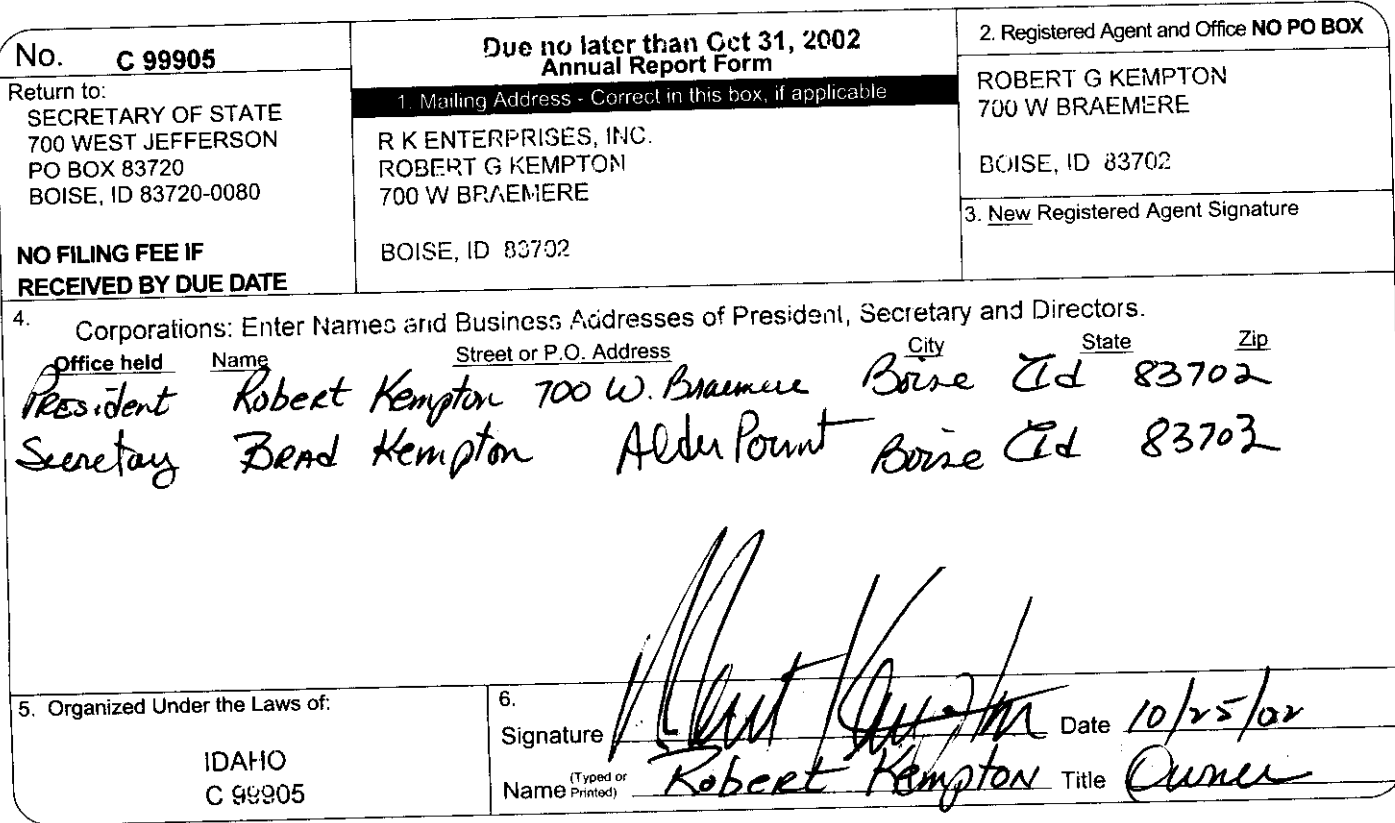 No. C 99905
Return to:
SECRETARY OF STATE
700 WEST JEFFERSON
PO BOX 83720
BOISE, ID 83720-0080
NO FILING FEE IF
RECEIVED BY DUE DATE
Due no later than Oct 31, 2002
Annual Report Form
1. Mailing Address - Correct in this box, if applicable
R K ENTERPRISES, INC.
ROBERT G KEMPTON
700 W BRAEMERE
BOISE, ID 83702
2. Registered Agent and Office NO PO BOX
ROBERT G KEMPTON
700 W BRAEMERE
BOISE, ID 83702
3. New Registered Agent Signature
4. Corporations: Enter Names and Business Addresses of President, Secretary and Directors.
Office held Name Street or P.O. Address City State Zip
President Robert Kempton 700 W. Braemere Boise Id 83702
Secretary Brad Kempton Alder Point Boise Id 83703
5. Organized Under the Laws of:
IDAHO
C 99905
6.
Signature Robert Kempton Date 10/25/02
Name (Typed or Printed) Robert Kempton Title Owner